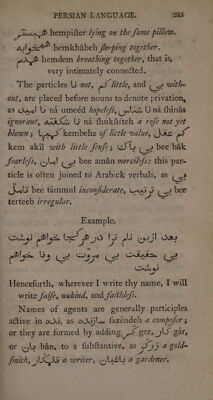 PERSIAN LANGUAGE.
همبستر hempister lying on the same pillow.
همخوابه hemkhábeh sleeping together.
همدم hemdem breathing together, that is,
very intimately connected.
The particles نا not, کم little, and بی with-
out, are placed before nouns to denote privation,
as نا امید ná umeed hopeless, نا شناس ná shinás
ignorant, نا شکفته ná shukufteh a rose not yet
blown; کم بها kembeha of little value, کم عقل
kem akil with little sense; بی باک bee bák
fearless, بی امان bee amán merciless: this par-
ticle is often joined to Arabick verbals, as بی
تامل bee támmul inconsiderate, بی ترتیب bee
terteeb irregular.
Example.
بعد ازین نام ترا در هر کجا خواهم نوشت
بی حقیقت بی مروت بی وفا خواهم
نوشت
Henceforth, wherever I write thy name, I will
write false, unkind, and faithless.
Names of agents are generally participles
active in نده, as سازنده sazendeh a composer;
or they are formed by adding گر ger, گار gár,
or بان bán, to a substantive, as زرگر a gold-
smith, a writer, باغبان a gardener.